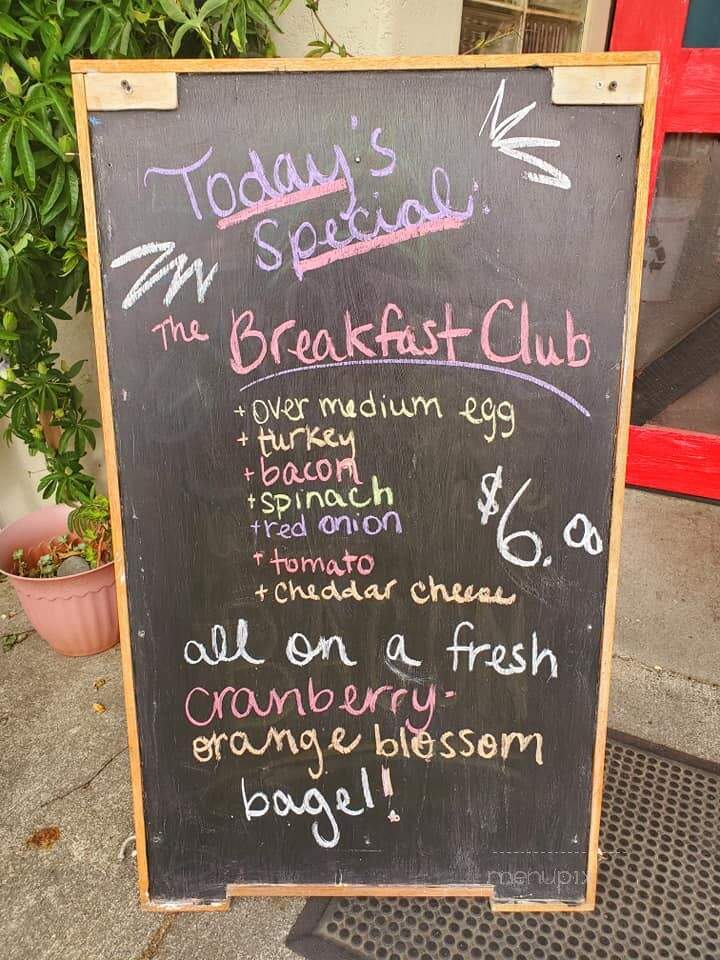 Today's
Special:
The Breakfast Club
+ over medium egg
+ turkey
+ bacon
+ spinach
+ red onion
+ tomato
+ cheddar cheese
$6.00
all on a fresh
cranberry-
orange blossom
bagel!
menupix